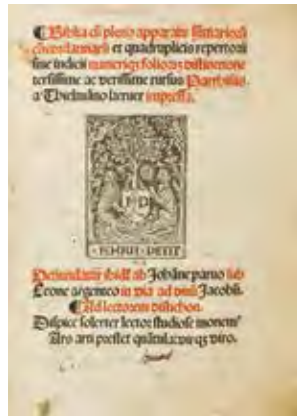 Biblia cū pleno apparatu summariorū
cōcordantiarū et quadruplicis repertorii
siue indicii numeriqȝ folioȝ distinctione
tersissime ac verissime rursus Parrhisiis
a Thielmāno keruer impressa.
I P
IEHAN PETIT
Venundatur ibidē ab Johāne paruo sub
Leone argenteo in via ad diuū Jacobū.
Ad lectorem distichon.
Despice solerter lector studiose
Ars arti prestet viro.